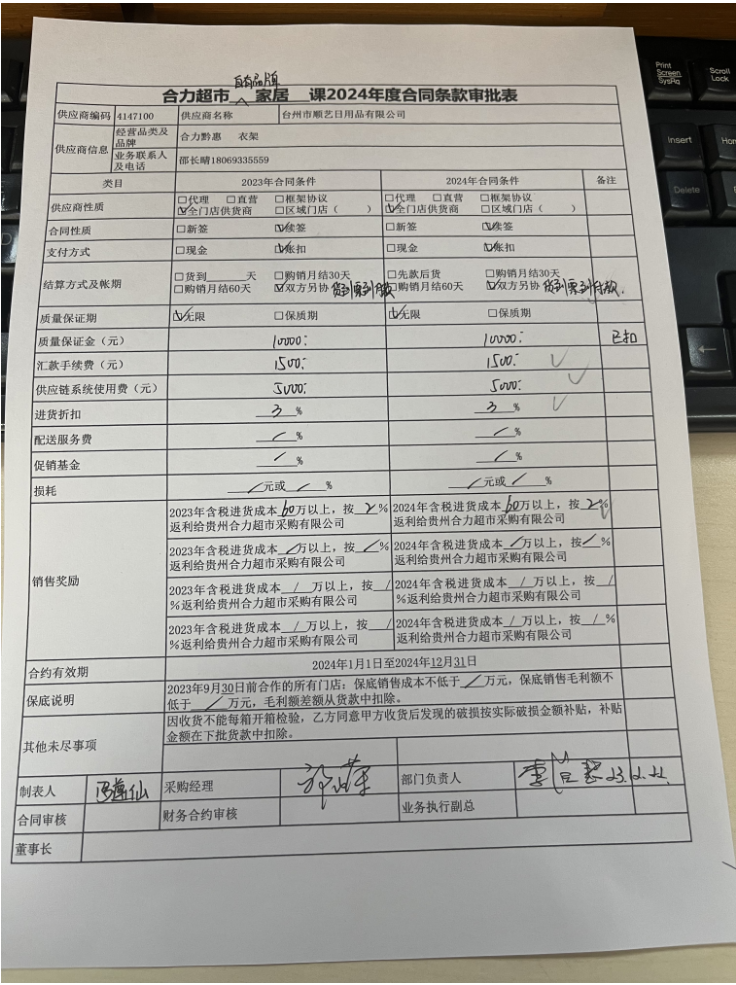 自有品牌
合力超市 家居 课2024年度合同条款审批表
供应商编码 4147100 供应商名称 台州市顺艺日用品有限公司
供应商信息 经营品类及品牌 合力黔惠 衣架
业务联系人及电话 邵长晴18069335559
类目 2023年合同条件 2024年合同条件 备注
供应商性质 □代理 □直营 □框架协议 □代理 □直营 □框架协议
☑全门店供货商 □区域门店（ ） ☑全门店供货商 □区域门店（ ）
合同性质 □新签 ☑续签 □新签 ☑续签
支付方式 □现金 ☑账扣 □现金 ☑账扣
结算方式及帐期 □货到____天 □购销月结30天 □先款后货 □购销月结30天
□购销月结60天 ☑双方另协 货到票到付款 □购销月结60天 ☑双方另协 货到票到付款.
质量保证期 ☑无限 □保质期 ☑无限 □保质期
质量保证金（元） 10000.- 10000.- 已扣
汇款手续费（元） 1500.- 1500.- ✓
供应链系统使用费（元） 5000.- 5000.- ✓
进货折扣 3 % 3 % ✓
配送服务费 / % / %
促销基金 / % / %
损耗 / 元或 / % / 元或 / %
销售奖励 2023年含税进货成本 60 万以上，按 2 % 2024年含税进货成本 60 万以上，按 2 %
返利给贵州合力超市采购有限公司 返利给贵州合力超市采购有限公司
2023年含税进货成本 / 万以上，按 / % 2024年含税进货成本 / 万以上，按 / %
返利给贵州合力超市采购有限公司 返利给贵州合力超市采购有限公司
2023年含税进货成本 / 万以上，按 / 2024年含税进货成本 / 万以上，按 /
%返利给贵州合力超市采购有限公司 %返利给贵州合力超市采购有限公司
2023年含税进货成本 / 万以上，按 / 2024年含税进货成本 / 万以上，按 / %
%返利给贵州合力超市采购有限公司 返利给贵州合力超市采购有限公司
合约有效期 2024年1月1日至2024年12月31日
保底说明 2023年9月30日前合作的所有门店：保底销售成本不低于 / 万元，保底销售毛利额不
低于 / 万元，毛利额差额从货款中扣除。
其他未尽事项 因收货不能每箱开箱检验，乙方同意甲方收货后发现的破损按实际破损金额补贴，补贴
金额在下批货款中扣除。
制表人 采购经理 部门负责人
合同审核 财务合约审核 业务执行副总
董事长
Print Screen SysRq
Scroll Lock
Insert
Delete